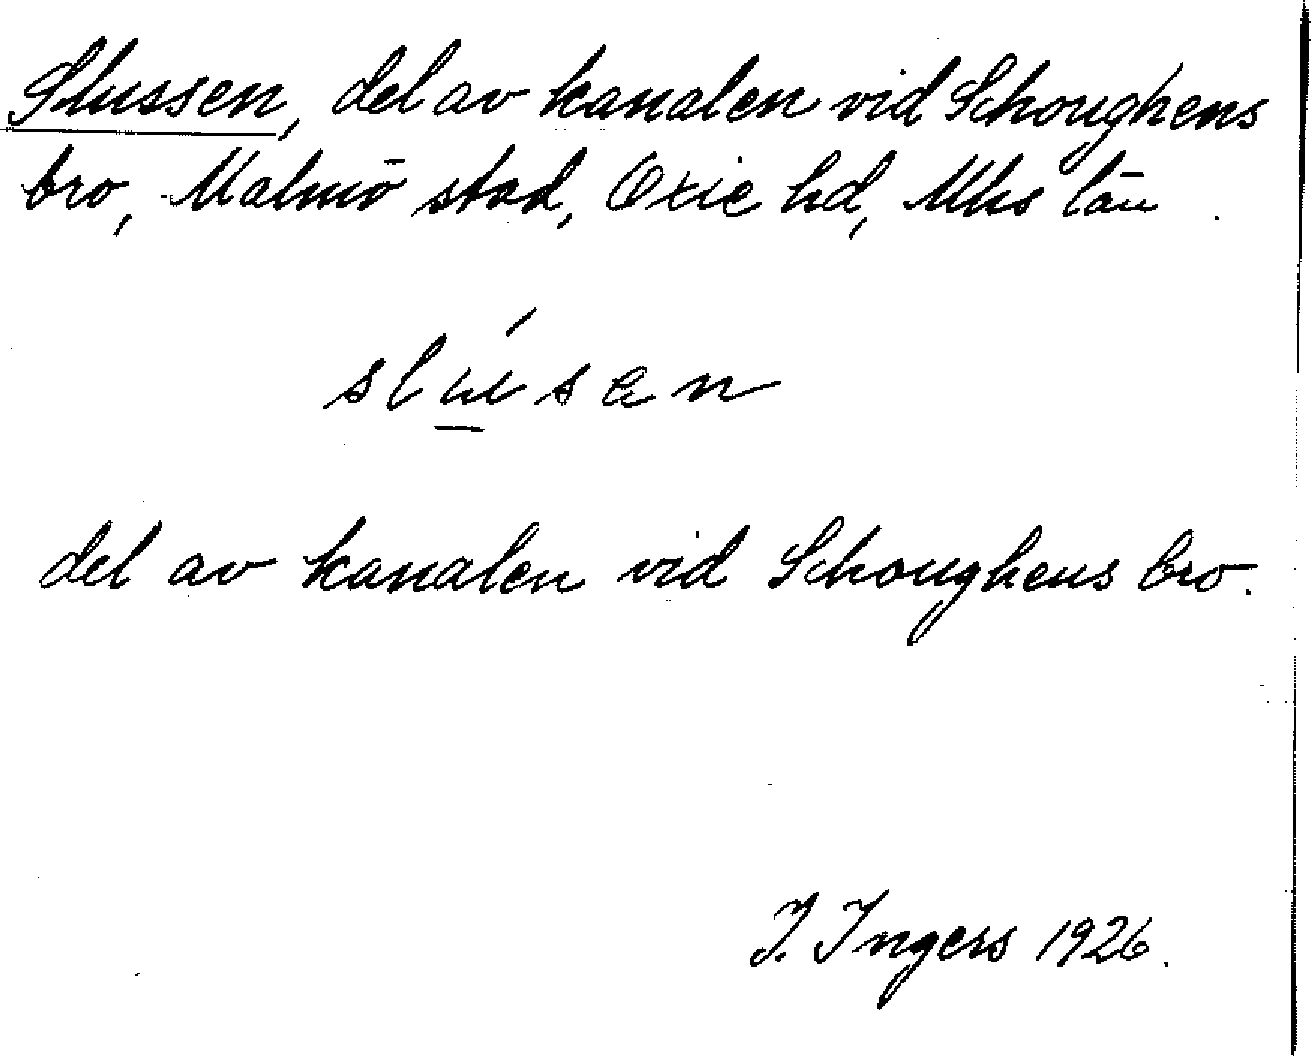 Slussen, del av kanalen vid Schoughens
bro, Malmö stad, Oxie hd, Mhs län.
del av kanalen vid Schoughens bro.
I. Ingers 1926.